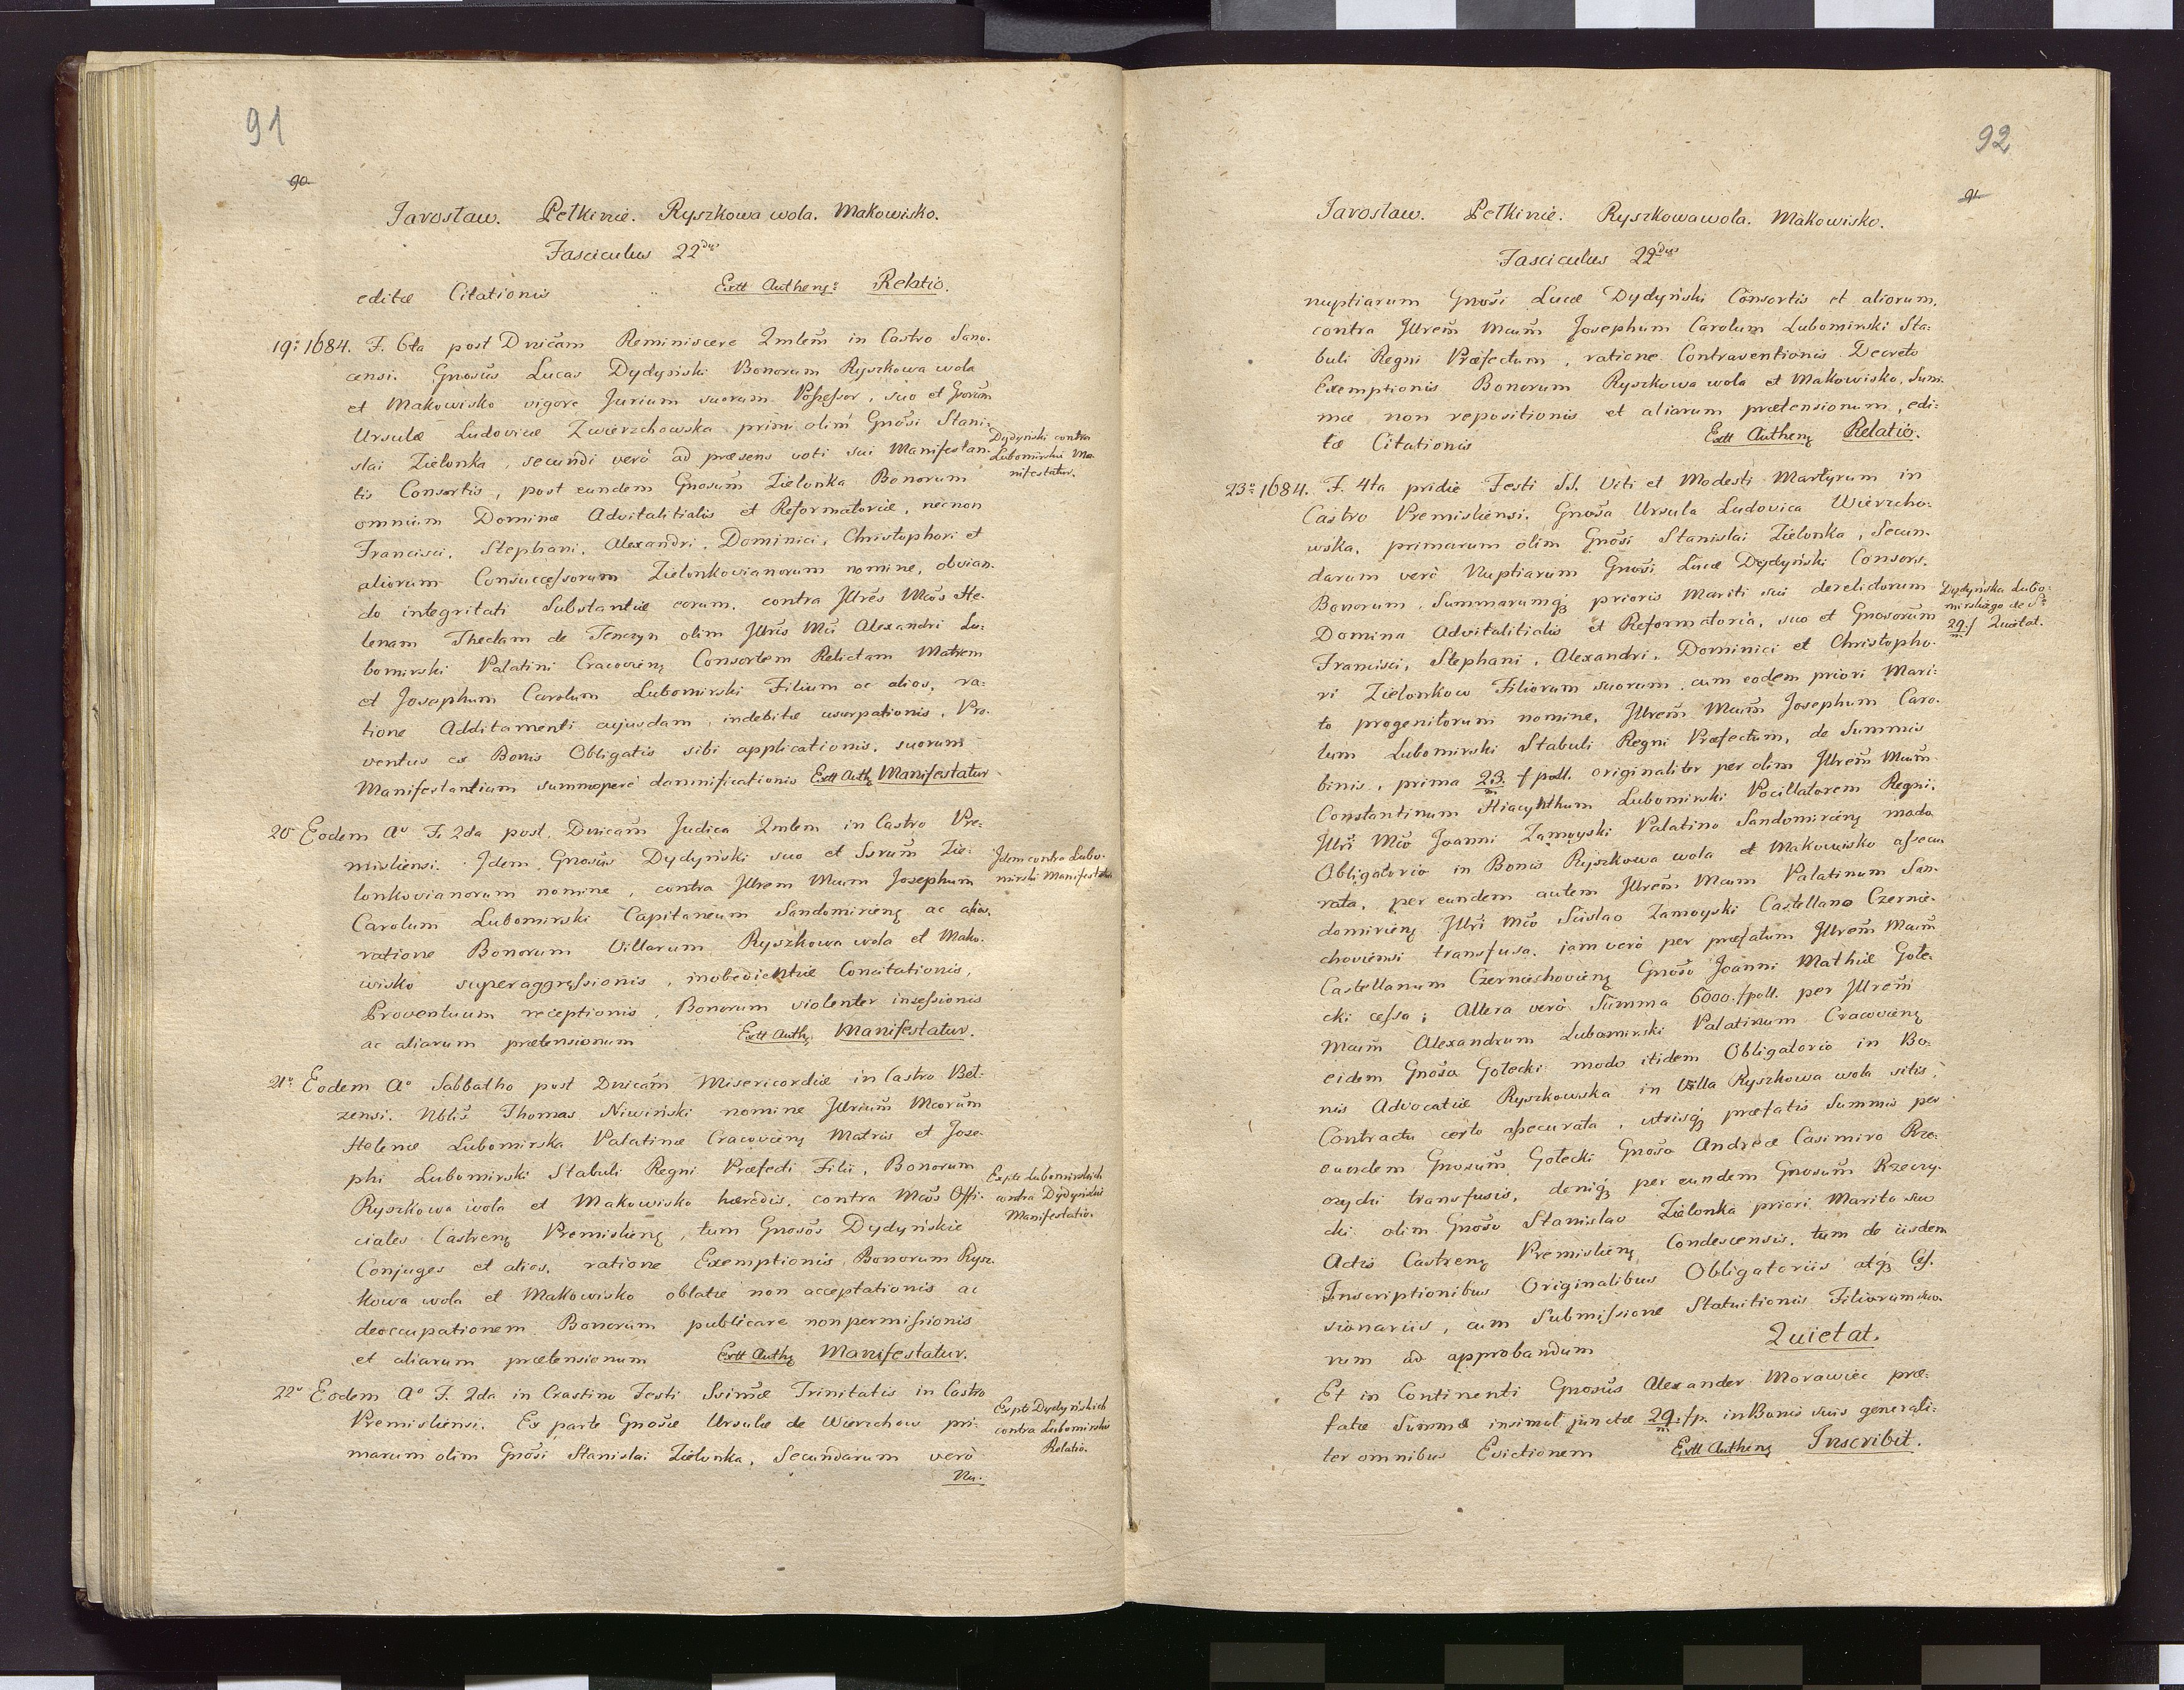 91
90
Jarosław. Pełkinie. Ryszkowa wola. Makowisko.
Fasciculus 22dus
editæ Citationis Extt Autheng: Relatio.
19: 1684. F. 6ta post Dnicam̄ Reminiscere Qmlem̄ in Castro Sano-
censi. Gnosus Lucas Dydyński Bonorum Ryszkowa wola
et Makowisko vigore Jurium suorum Possessor, suo et Gnorum
Ursulæ Ludovicæ Zwierzchowska primi olim Gnosi Stani-
slai Zielonka, secundi verò ad præsens voti sui Manifestan-
tis Consortis, post eundem Gnosum Zielonka Bonorum
omnium Dominæ Advitalitialis et Reformatoriæ, necnon
Francisci, Stephani, Alexandri, Dominici, Christophori et
aliorum Consuccessorum Zielonkovianorum nomine, obvian-
do integritati Substantiæ eorum, contra Jllres Mcos He-
lenam Theclam de Tenczyn olim Jllris Mci Alexandri Lu-
bomirski Palatini Cracovieng Consortem Relictam Matrem
et Josephum Carolum Lubomirski Filium ac alios, ra-
tione Additamenti cujusdam, indebitæ usurpationis, Pro-
ventus ex Bonis Obligatis sibi applicationis, suorum
Manifestantium summoperè damnificationis Extt Authg Manifestatur
Dydyński contra
Lubomirski Ma-
nifestatur.
20 Eodem Ao F. 2da post Dnicam̄ Judica Qmlem in Castro Pre-
misliensi. Jdem Gnosus Dydyński suo et Ssrum̄ Zie-
lonkovianorum nomine, contra Jllrem Mcum Josephum
Carolum Lubomirski Capitaneum Sandomirieng ac alios,
ratione Bonorum Villarum Ryszkowa wola et Mako-
wisko superaggressionis, inobedientiæ Concitationis,
Proventuum receptionis, Bonorum violenter insessionis
ac aliarum prætensionum Extt Authg. Manifestatur.
Jdem contra Lubo-
mirski Manifestatur
21o Eodem Ao Sabbatho post Dnicam̄ Misericordiæ in Castro Bel-
zensi. Nblis Thomas Niwiński nomine Jllrium Mcorum
Helenæ Lubomirska Palatinæ Cracovieng Matris et Jose-
phi Lubomirski Stabuli Regni Præfecti Filii, Bonorum
Ryszkowa wola et Makowisko hæredis, contra Mcos Offi-
ciales Castreng Premislieng, tum Gnosos Dydyńskie
Conjuges et alios, ratione Exemptionis Bonorum Rysz-
kowa wola et Makowisko oblatæ non acceptationis ac
deoccupationem Bonorum publicare non permissionis
et aliarum prætensionum Extt Authg Manifestatur.
Ex pte Lubomirskich
contra Dydyński
Manifestatio.
22o Eodem Ao F. 2da in Crastino Festi Ssimæ Trinitatis in Castro
Premisliensi. Ex parte Gnosæ Ursulæ de Wierzchow pri-
marum olim Gnosi Stanislai Zielonka, Secundarum verò
Nu-
Ex pte Dydyńskich
contra Lubomirski
Relatio.
92
91
Jarosław. Pełkinie. Ryszkowawola. Makowisko.
Fasciculus 22dus
nuptiarum Gnosi Lucæ Dydyński Consortis et aliorum,
contra Jllrem̄ Mcum̄ Josephum Carolum Lubomirski Sta-
buli Regni Præfectum, ratione Contraventionis Decreto
Exemptionis Bonorum Ryszkowa wola et Makowisko, Sum-
mæ non repositionis et aliarum prætensionum, edi-
tæ Citationis Extt Autheng Relatio.
23o 1684. F. 4ta pridie Festi SS. Viti et Modesti Martyrum in
Castro Premisliensi. Gnosa Ursula Ludovica Wierzcho-
wska, primarum olim Gnosi Stanislai Zielonka, Secun-
darum verò Nuptiarum Gnosi Lucæ Dydyński Consors,
Bonorum, Summarumq̨ prioris Mariti sui derelictorum
Domina Advitalitialis et Reformatoria, suo et Gnosorum
Francisci, Stephani, Alexandri, Dominici et Christopho-
ri Zielonkow Filiorum suorum, cum eodem priori Mari-
to progenitorum nomine, Jllrem̄ Mcum̄ Josephum Caro-
lum Lubomirski Stabuli Regni Præfectum, de Summis
binis, prima 23/m f poll. originaliter per olim Jllrem̄ Mcum
Constantinum Hiacynthum Lubomirski Pocillatorem Regni,
Jllri Mco Joanni Zamoyski Palatino Sandomirieng modo
Obligatorio in Bonis Ryszkowa wola et Makowisko assecu-
rata, per eundem autem Jllrem̄ Mcum Palatinum San-
domirieng Jllri Mco Scislao Zamoyski Castellano Czernie-
choviensi transfusa, iam verò per præfatum Jllrem̄ Mcum̄
Castellanum Czerniechovieng Gnoso Joanni Mathiæ Gołe-
cki cessa; Altera verò Summa 6000. f poll. per Jllrem̄
Mcum̄ Alexandrum Lubomirski Palatinum Cracovieng
eidem Gnoso Gołecki modo itidem Obligatorio in Bo-
nis Advocatiæ Ryszkowska in Villa Ryszkowa wola sitis,
Contractu certo assecurata, utrisq̨ præfatis Summis per
eundem Gnosum̄ Gołecki Gnoso Andreæ Casimiro Rze-
czycki transfusis, deniq̨ per eundem Gnosum̄ Rzeczy-
cki olim Gnoso Stanislao Zielonka priori Marito suo
Actis Castreng Premislieng Condescensis, tum de iisdem
Inscriptionibus Originalibus Obligatoriis atq̨ Ces-
sionariis, cum Submissione Statuitionis Filiorum suo-
rum ad approbandum Quietat.
Dydyńska Lubo-
mirskiego de Sa
29/m f Quietat.
Et in Continenti Gnosus Alexander Morawiec præ-
fatæ Summæ insimul junctæ 29/m f p. in Bonis suis generali-
ter omnibus Evictionem Extt Autheng Inscribit.